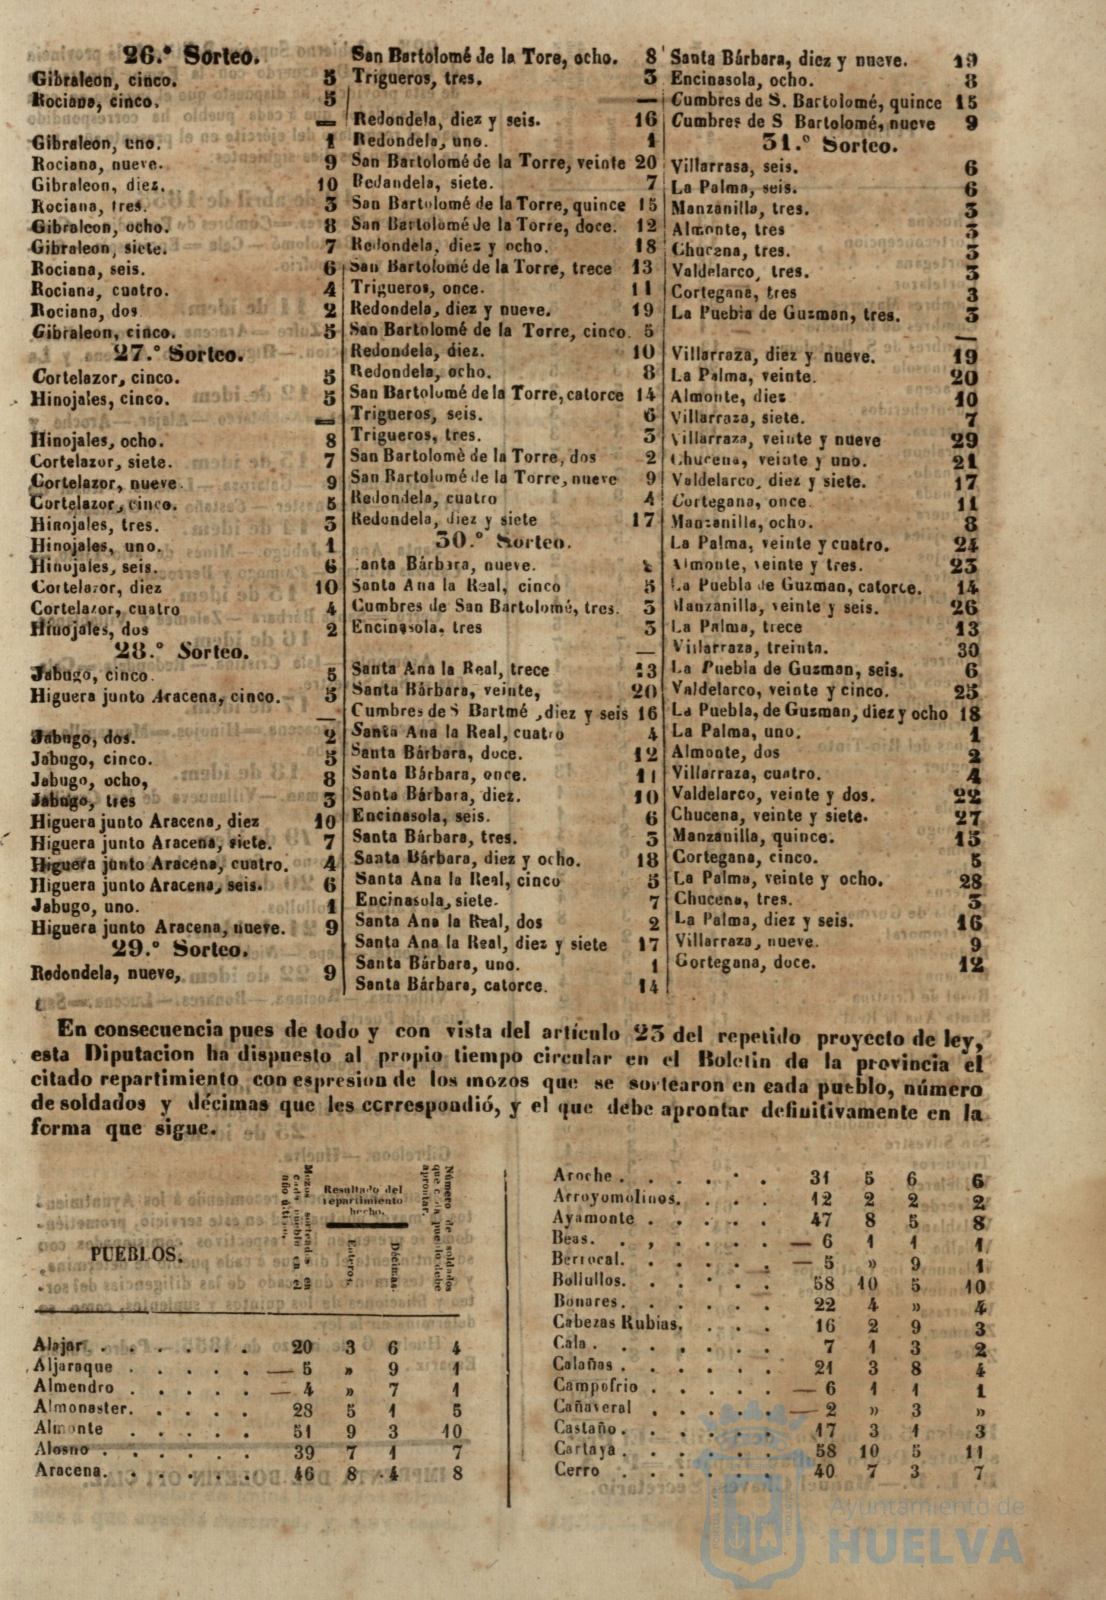 26.º Sorteo.
Gibraleon, cinco. 5
Rociana, cinco. 5
—
Gibraleon, uno. 1
Rociana, nueve. 9
Gibraleon, diez. 10
Rociana, tres. 3
Gibraleon, ocho. 8
Gibraleon, siete. 7
Rociana, seis. 6
Rociana, cuatro. 4
Rociana, dos 2
Gibraleon, cinco. 5
27.º Sorteo.
Cortelazor, cinco. 5
Hinojales, cinco. 5
—
Hinojales, ocho. 8
Cortelazor, siete. 7
Cortelazor, nueve. 9
Cortelazor, cinco. 5
Hinojales, tres. 3
Hinojales, uno. 1
Hinojales, seis. 6
Cortelazor, diez 10
Cortelazor, cuatro 4
Hinojales, dos 2
28.º Sorteo.
Jabugo, cinco. 5
Higuera junto Aracena, cinco. 5
—
Jabugo, dos. 2
Jabugo, cinco. 5
Jabugo, ocho, 8
Jabugo, tres 3
Higuera junto Aracena, diez 10
Higuera junto Aracena, siete. 7
Higuera junto Aracena, cuatro. 4
Higuera junto Aracena, seis. 6
Jabugo, uno. 1
Higuera junto Aracena, nueve. 9
29.º Sorteo.
Redondela, nueve, 9
San Bartolomé de la Tore, ocho. 8
Trigueros, tres. 3
—
Redondela, diez y seis. 16
Redondela, uno. 1
San Bartolomé de la Torre, veinte 20
Redandela, siete. 7
San Bartolomé de la Torre, quince 15
San Bartolomé de la Torre, doce. 12
Redondela, diez y ocho. 18
San Bartolomé de la Torre, trece 13
Trigueros, once. 11
Redondela, diez y nueve. 19
San Bartolomé de la Torre, cinco 5
Redondela, diez. 10
Redondela, ocho. 8
San Bartolomé de la Torre, catorce 14
Trigueros, seis. 6
Trigueros, tres. 3
San Bartolomè de la Torre, dos 2
San Bartolomé de la Torre, nueve 9
Redondela, cuatro 4
Redondela, diez y siete 17
30.º Sorteo.
anta Bárbara, nueve.
Santa Ana la Real, cinco 5
Cumbres de San Bartolomé, tres. 3
Encinasola, tres 3
—
Santa Ana la Real, trece 13
Santa Bárbara, veinte, 20
Cumbres de S Bartmé, diez y seis 16
Santa Ana la Real, cuatro 4
Santa Bárbara, doce. 12
Santa Bárbara, once. 11
Santa Bárbara, diez. 10
Encinasola, seis. 6
Santa Bárbara, tres. 3
Santa Bárbara, diez y ocho. 18
Santa Ana la Real, cinco 5
Encinasola, siete. 7
Santa Ana la Real, dos 2
Santa Ana la Real, diez y siete 17
Santa Bárbara, uno. 1
Santa Bárbara, catorce. 14
Santa Bárbara, diez y nueve. 19
Encinasola, ocho. 8
Cumbres de S. Bartolomé, quince 15
Cumbres de S Bartolomé, nueve 9
31.º Sorteo.
Villarrasa, seis. 6
La Palma, seis. 6
Manzanilla, tres. 3
Almonte, tres 3
Chucena, tres. 3
Valdelarco, tres. 3
Cortegana, tres 3
La Puebla de Guzman, tres. 3
—
Villarraza, diez y nueve. 19
La Palma, veinte. 20
Almonte, diez 10
Villarraza, siete. 7
Villarraza, veinte y nueve 29
Chucena, veinte y uno. 21
Valdelarco, diez y siete. 17
Cortegana, once. 11
Manzanilla, ocho. 8
La Palma, veinte y cuatro. 24
Almonte, veinte y tres. 23
La Puebla de Guzman, catorce. 14
Manzanilla, veinte y seis. 26
La Palma, trece 13
Villarraza, treinta. 30
La Puebla de Guzman, seis. 6
Valdelarco, veinte y cinco. 25
La Puebla, de Guzman, diez y ocho 18
La Palma, uno. 1
Almonte, dos 2
Villarraza, cuatro. 4
Valdelarco, veinte y dos. 22
Chucena, veinte y siete. 27
Manzanilla, quince. 15
Cortegana, cinco. 5
La Palma, veinte y ocho. 28
Chucena, tres. 3
La Palma, diez y seis. 16
Villarraza, nueve. 9
Cortegana, doce. 12
En consecuencia pues de todo y con vista del artículo 23 del repetido proyecto de ley,
esta Diputacion ha dispuesto al propio tiempo circular en el Boletin de la provincia el
citado repartimiento con espresion de los mozos que se sortearon en cada pueblo, número
de soldados y décimas que les correspondió, y el que debe aprontar definitivamente en la
forma que sigue.
PUEBLOS.
Mozos sorteados en
cada pueblo en el
año último.
Resultado del
repartimiento
hecho.
Enteros.
Décimas.
Número de soldados
que cada pueblo debe
aprontar.
Alajar . . . . . . 20 3 6 4
Aljaraque . . . . . — 5 » 9 1
Almendro . . . . . — 4 » 7 1
Almonaster. . . . . 28 5 1 5
Almonte . . . . . 51 9 3 10
Alosno . . . . . . 39 7 1 7
Aracena. . . . . . 46 8 4 8
Aroche . . . . . 31 5 6 6
Arroyomolinos. . . . 12 2 2 2
Ayamonte . . . . . 47 8 5 8
Beas. . . . . . . — 6 1 1 1
Berrocal. . . . . . — 5 » 9 1
Bollullos. . . . . . 58 10 5 10
Bonares. . . . . . 22 4 » 4
Cabezas Rubias. . . . 16 2 9 3
Cala . . . . . . . 7 1 3 2
Calañas . . . . . . 21 3 8 4
Campofrio . . . . . — 6 1 1 1
Cañaveral . . . . . — 2 » 3 »
Castaño. . . . . . 17 3 1 3
Cartaya . . . . . . 58 10 5 11
Cerro . . . . . . 40 7 3 7
Ayuntamiento de
HUELVA